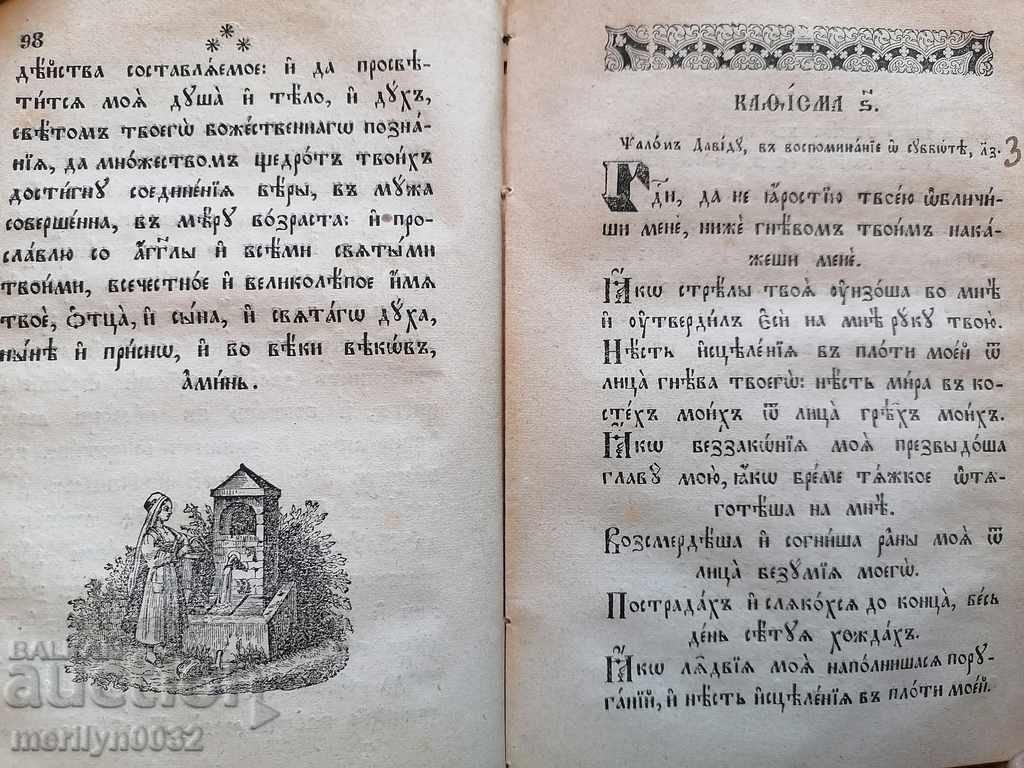 98
дѣ́йства составлѧ́емое: и҆ да просвѣ-
ти́тсѧ моѧ̀ дꙋша̀ и҆ тѣ́ло, и҆ дꙋ́хъ,
свѣ́томъ твоегѡ̀ божественнагѡ позна́-
нїѧ, да мно́жествомъ щедро́тъ твои́хъ
дости́гнꙋ соедине́нїѧ вѣ́ры, въ мꙋ́жа
соверше́нна, въ мѣ́рꙋ во́зраста: и҆ про-
сла́влю со а҆́гг҃лы и҆ всѣ́ми свѧты́ми
твои́ми, всече́стное и҆ великолѣ́пое и҆́мѧ
твоѐ, ѻ҆тца̀, и҆ сы́на, и҆ свѧта́гѡ дꙋ́ха,
ны́нѣ и҆ при́снѡ, и҆ во вѣ́ки вѣкѡ́въ,
а҆ми́нь.
КАѲІ́СМА Ѕ҃.
Ѱало́мъ Даві́дꙋ, въ воспомина́нїе ѡ҆ сꙋббѡ́тѣ, л҃з. 3
Гдⷭ҇и, да не ꙗ҆́ростїю твое́ю ѡ҆бличи́-
ши менѐ, ниже́ гнѣ́вомъ твои́мъ нака́-
жеши менѐ.
Ꙗ҆́кѡ стрѣ́лы твоѧ̀ ᲂу҆нзо́ша во мнѣ̀
и҆ ᲂу҆тверди́лъ є҆сѝ на мнѣ̀ рꙋ́кꙋ твою̀.
Нѣ́сть и҆сцѣле́нїѧ въ пло́ти мое́й ѿ
лица̀ гнѣ́ва твоегѡ̀: нѣ́сть ми́ра въ ко-
сте́хъ мои́хъ ѿ лица̀ грѣ̑хъ мои́хъ.
Ꙗ҆́кѡ беззакѡ́нїѧ моѧ̑ превзыдо́ша
главꙋ̀ мою̀, ꙗ҆́кѡ бре́ме тѧ́жкое ѡ҆тѧ-
готѣ́ша на мнѣ̀.
Возсмердѣ́ша и҆ согни́ша ра̑ны моѧ̑ ѿ
лица̀ безꙋ́мїѧ моегѡ̀.
Пострада́хъ и҆ слѧко́хсѧ до конца̀, ве́сь
де́нь сѣ́тꙋѧ хожда́хъ.
Ꙗ҆́кѡ лѧ̑двїѧ моѧ̑ напо́лнишасѧ порꙋ-
га́нїй, и҆ нѣ́сть и҆сцѣле́нїѧ въ пло́ти мое́й.
БАЛКАН
auction
merilyn0032